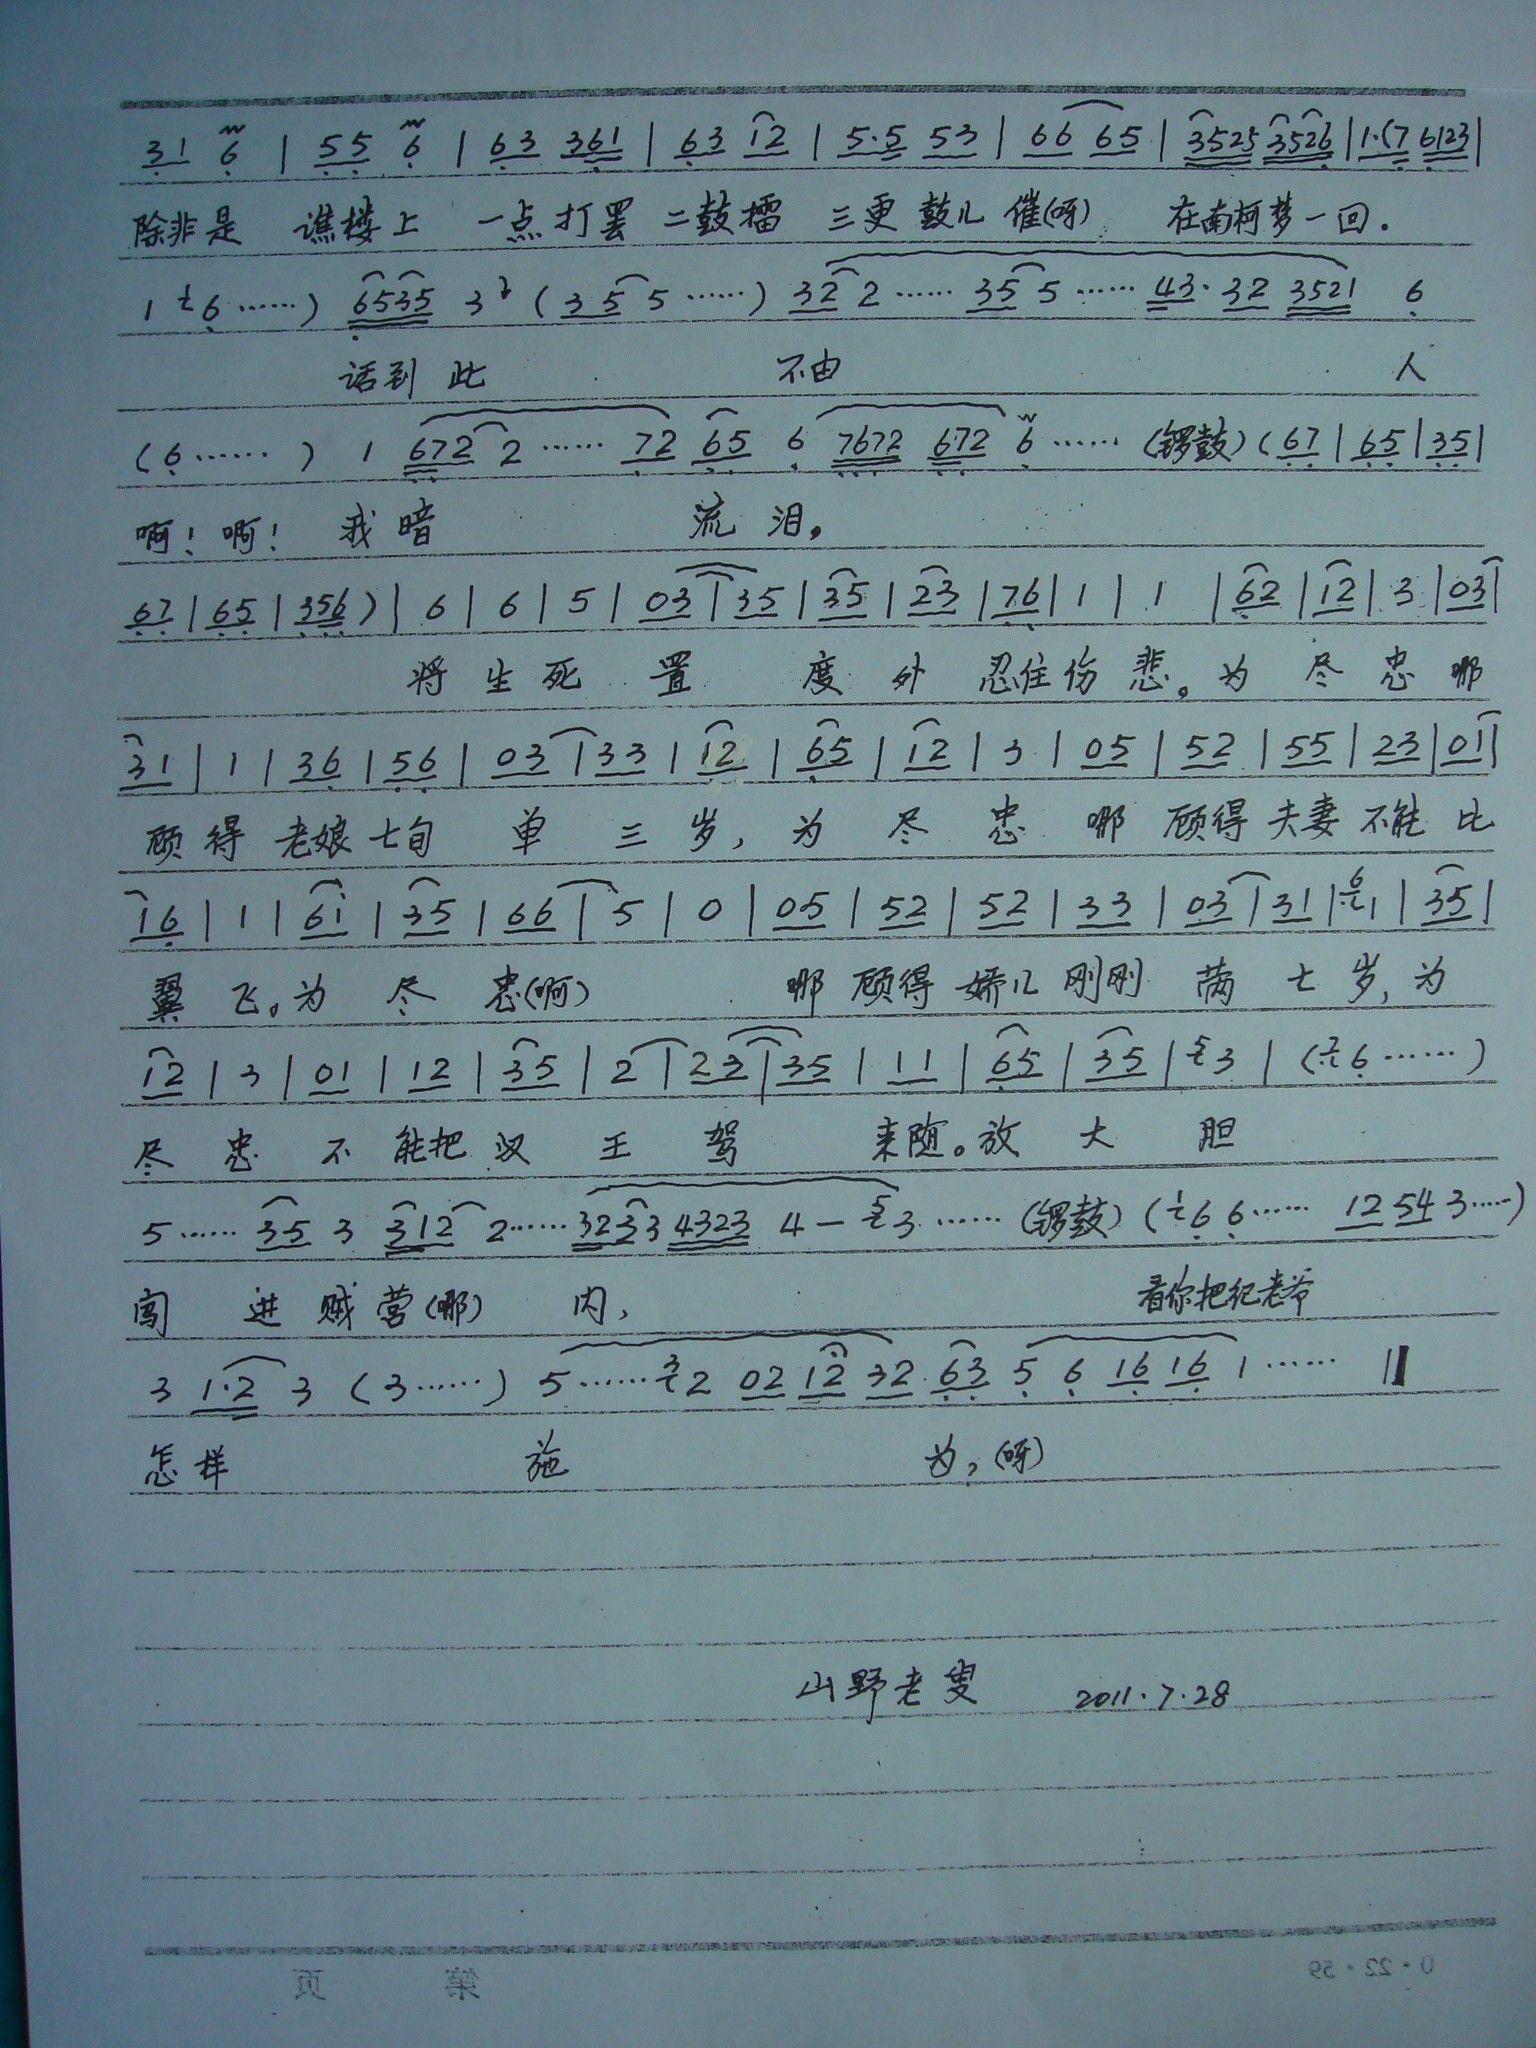 31 6 | 55 6 | 63 361 | 63 12 | 5·5 53 | 66 65 | 3525 3526 | 1·(7 6123 |
除非是 谯楼上 一点打罢 二鼓擂 三更鼓儿催(呀) 在南柯梦一回.
1 1 6 ……) 6535 3 2 (35 5 ……) 32 2 …… 35 5 …… 43· 32 3521 6
话到此 不由 人
(6 ……) 1 672 2 …… 72 65 6 7672 672 6 …… (锣鼓) (67 | 65 | 35 |
啊! 啊! 我暗 流泪,
67 | 65 | 356) | 6 | 6 | 5 | 03 | 35 | 35 | 23 | 76 | 1 | 1 | 62 | 12 | 3 | 03 |
将生死置 度外 忍住伤悲。为尽忠哪
31 | 1 | 36 | 56 | 03 | 33 | 12 | 65 | 12 | 3 | 05 | 52 | 55 | 23 | 01 |
顾得老娘七旬 单三岁, 为尽忠 哪顾得夫妻不能比
16 | 1 | 61 | 35 | 66 | 5 | 0 | 05 | 52 | 52 | 33 | 03 | 31 | 6 1 | 35 |
翼飞。为尽忠(啊) 哪顾得娇儿刚刚满七岁, 为
12 | 3 | 01 | 12 | 35 | 2 | 23 | 35 | 11 | 65 | 35 | 5 3 | (2 6 ……)
尽忠不能把汉王驾 来随。放大胆
5 …… 35 3 312 2 …… 3233 4323 4 — 5 3 …… (锣鼓) (1 6 6 …… 12 54 3 ……)
闯进贼营(哪) 内, 看你把纪老爷
3 1·2 3 (3 ……) 5 …… 3 2 02 12 32 63 5 6 16 16 1 …… ‖
怎样 施 为,(呀)
山野老叟 2011.7.28
第 页 0·22·59